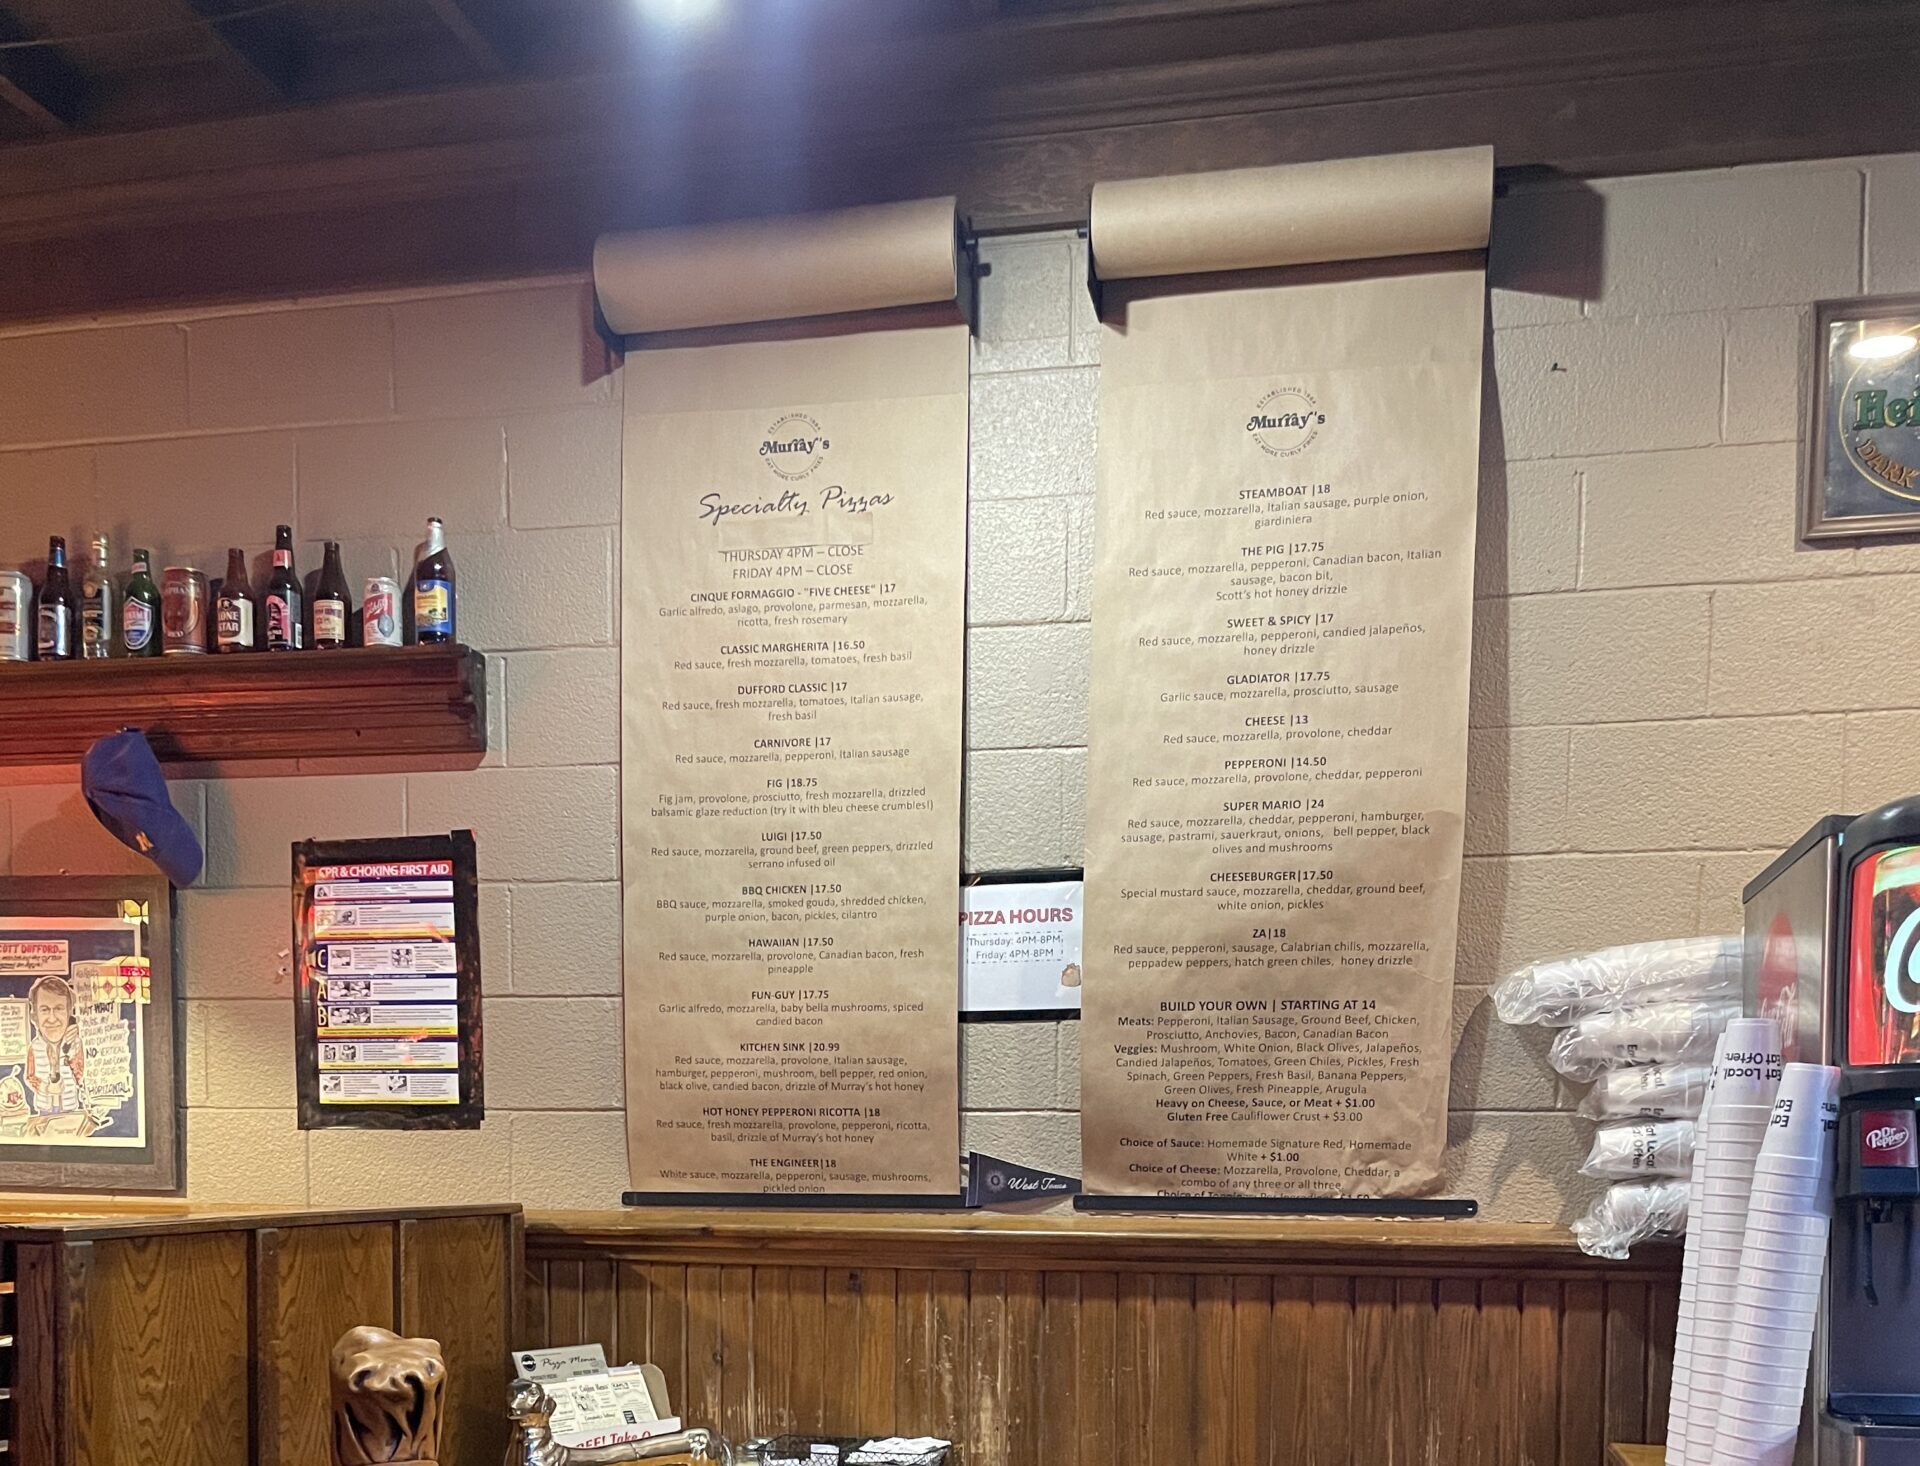 ESTABLISHED 1984
Murray's
EAT MORE CURLY FRIES
Specialty Pizzas
THURSDAY 4PM – CLOSE
FRIDAY 4PM – CLOSE
CINQUE FORMAGGIO - "FIVE CHEESE" |17
Garlic alfredo, asiago, provolone, parmesan, mozzarella,
ricotta, fresh rosemary
CLASSIC MARGHERITA |16.50
Red sauce, fresh mozzarella, tomatoes, fresh basil
DUFFORD CLASSIC |17
Red sauce, fresh mozzarella, tomatoes, Italian sausage,
fresh basil
CARNIVORE |17
Red sauce, mozzarella, pepperoni, Italian sausage
FIG |18.75
Fig jam, provolone, prosciutto, fresh mozzarella, drizzled
balsamic glaze reduction (try it with bleu cheese crumbles!)
LUIGI |17.50
Red sauce, mozzarella, ground beef, green peppers, drizzled
serrano infused oil
BBQ CHICKEN |17.50
BBQ sauce, mozzarella, smoked gouda, shredded chicken,
purple onion, bacon, pickles, cilantro
HAWAIIAN |17.50
Red sauce, mozzarella, provolone, Canadian bacon, fresh
pineapple
FUN-GUY |17.75
Garlic alfredo, mozzarella, baby bella mushrooms, spiced
candied bacon
KITCHEN SINK |20.99
Red sauce, mozzarella, provolone, Italian sausage,
hamburger, pepperoni, mushroom, bell pepper, red onion,
black olive, candied bacon, drizzle of Murray's hot honey
HOT HONEY PEPPERONI RICOTTA |18
Red sauce, fresh mozzarella, provolone, pepperoni, ricotta,
basil, drizzle of Murray's hot honey
THE ENGINEER|18
White sauce, mozzarella, pepperoni, sausage, mushrooms,
pickled onion
ESTABLISHED 1984
Murray's
EAT MORE CURLY FRIES
STEAMBOAT |18
Red sauce, mozzarella, Italian sausage, purple onion,
giardiniera
THE PIG |17.75
Red sauce, mozzarella, pepperoni, Canadian bacon, Italian
sausage, bacon bit,
Scott's hot honey drizzle
SWEET & SPICY |17
Red sauce, mozzarella, pepperoni, candied jalapeños,
honey drizzle
GLADIATOR |17.75
Garlic sauce, mozzarella, prosciutto, sausage
CHEESE |13
Red sauce, mozzarella, provolone, cheddar
PEPPERONI |14.50
Red sauce, mozzarella, provolone, cheddar, pepperoni
SUPER MARIO |24
Red sauce, mozzarella, cheddar, pepperoni, hamburger,
sausage, pastrami, sauerkraut, onions, bell pepper, black
olives and mushrooms
CHEESEBURGER|17.50
Special mustard sauce, mozzarella, cheddar, ground beef,
white onion, pickles
ZA|18
Red sauce, pepperoni, sausage, Calabrian chilis, mozzarella,
peppadew peppers, hatch green chiles, honey drizzle
BUILD YOUR OWN | STARTING AT 14
Meats: Pepperoni, Italian Sausage, Ground Beef, Chicken,
Prosciutto, Anchovies, Bacon, Canadian Bacon
Veggies: Mushroom, White Onion, Black Olives, Jalapeños,
Candied Jalapeños, Tomatoes, Green Chiles, Pickles, Fresh
Spinach, Green Peppers, Fresh Basil, Banana Peppers,
Green Olives, Fresh Pineapple, Arugula
Heavy on Cheese, Sauce, or Meat + $1.00
Gluten Free Cauliflower Crust + $3.00
Choice of Sauce: Homemade Signature Red, Homemade
White + $1.00
Choice of Cheese: Mozzarella, Provolone, Cheddar, a
combo of any three or all three
PIZZA HOURS
Thursday: 4PM-8PM
Friday: 4PM-8PM
West Texas
CPR & CHOKING FIRST AID
C
A
B
LONE
STAR
DUFFORD
HORIZONTAL!
Hei
DARK
Dr
Pepper
Eat Local.
Eat Often.
Pizza Menu